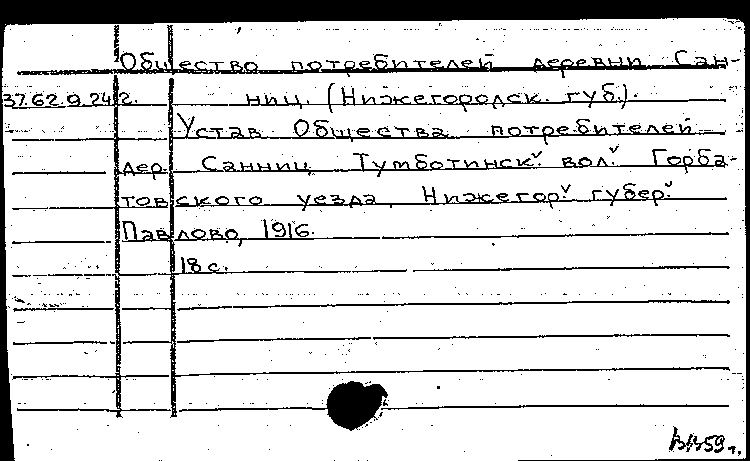 Общество потребителей деревни Сан-
37.62.9.242. ниц. (Нижегородск. губ.).
Устав Общества потребителей
дер. Санниц Тумботинск. вол. Горба-
товского уезда, Нижегор. губер.
Павлово, 1916.
18 с.